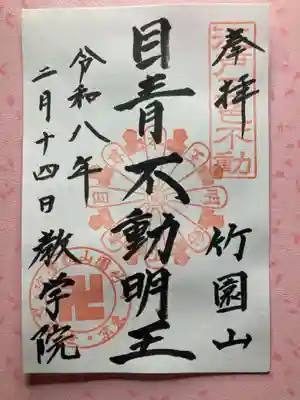 奉拝
竹園山
目青不動明王
令和八年
二月十四日
教学院
江戸五色不動